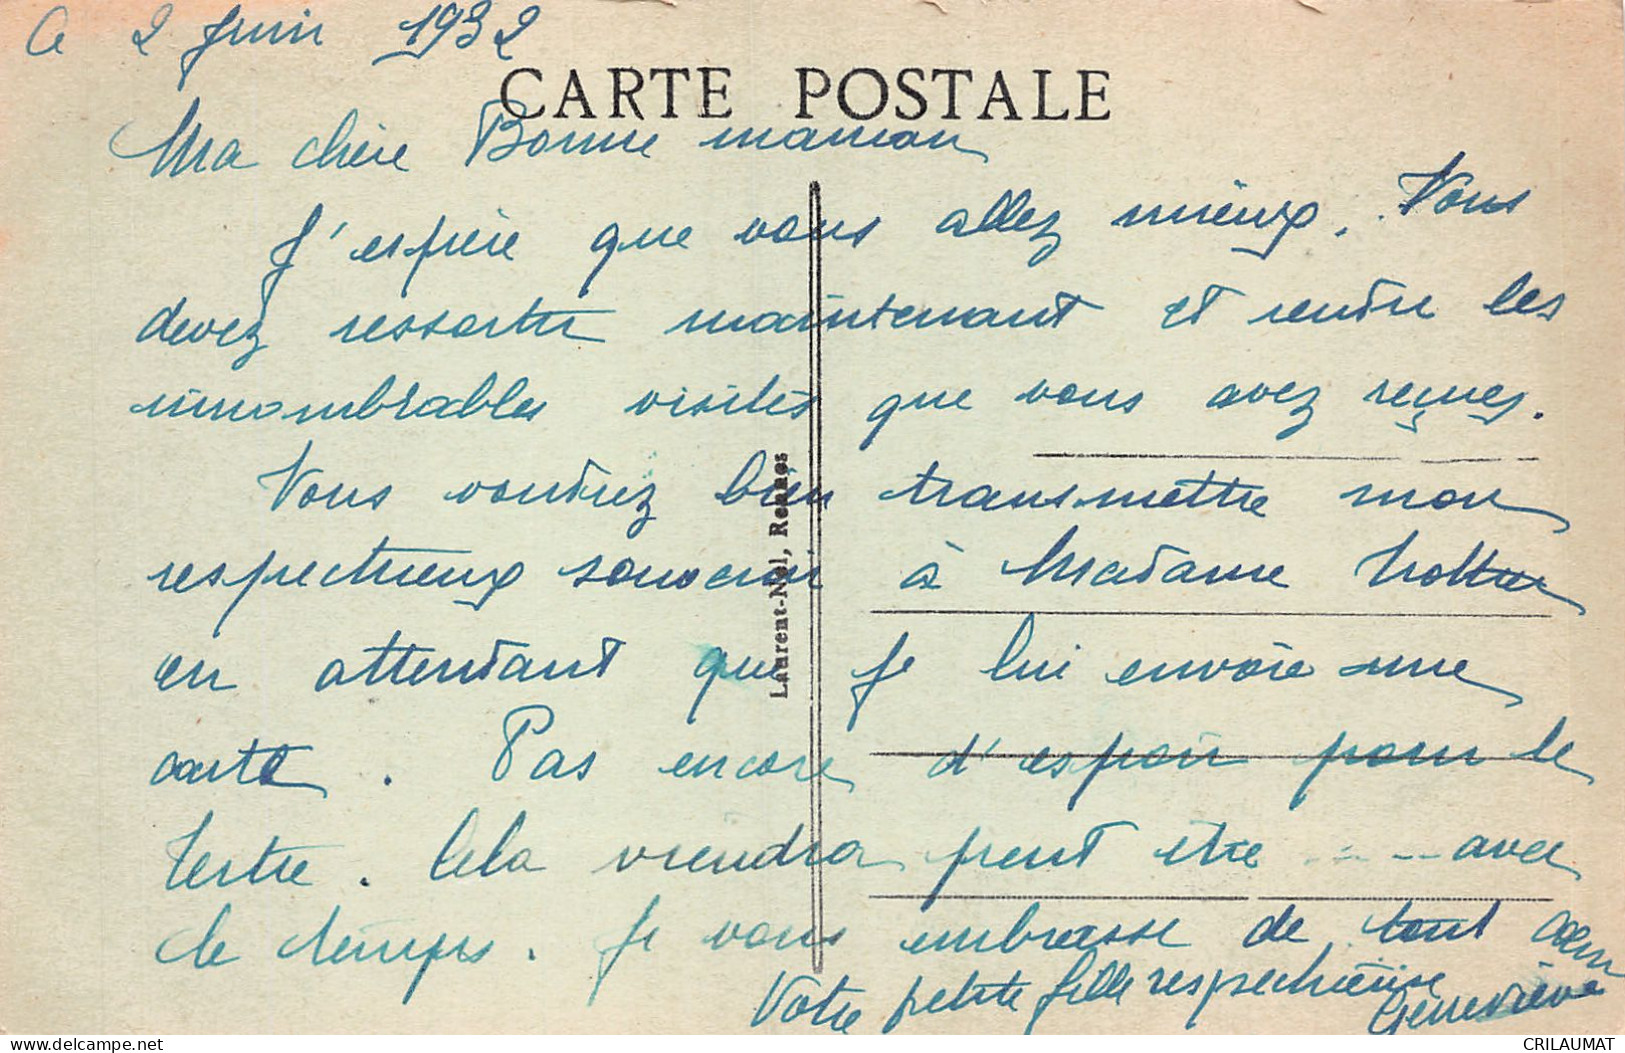 Ce 2 Juin 1932
CARTE POSTALE
Ma chère Bonne maman
J'espère que vous allez mieux. Vous
devez ressortir maintenant et rendre les
innombrables visites que vous avez reçues.
Vous voudrez bien transmettre mon
respectueux souvenir à Madame
en attendant que je lui envoie une
carte. Pas encore d'espoir pour le
tertre. Cela viendra peut être .... avec
le temps. Je vous embrasse de tout coeur
Votre petite fille respectueuse
Geneviève
Laurent-Nel, Rennes
CRILAUMAT